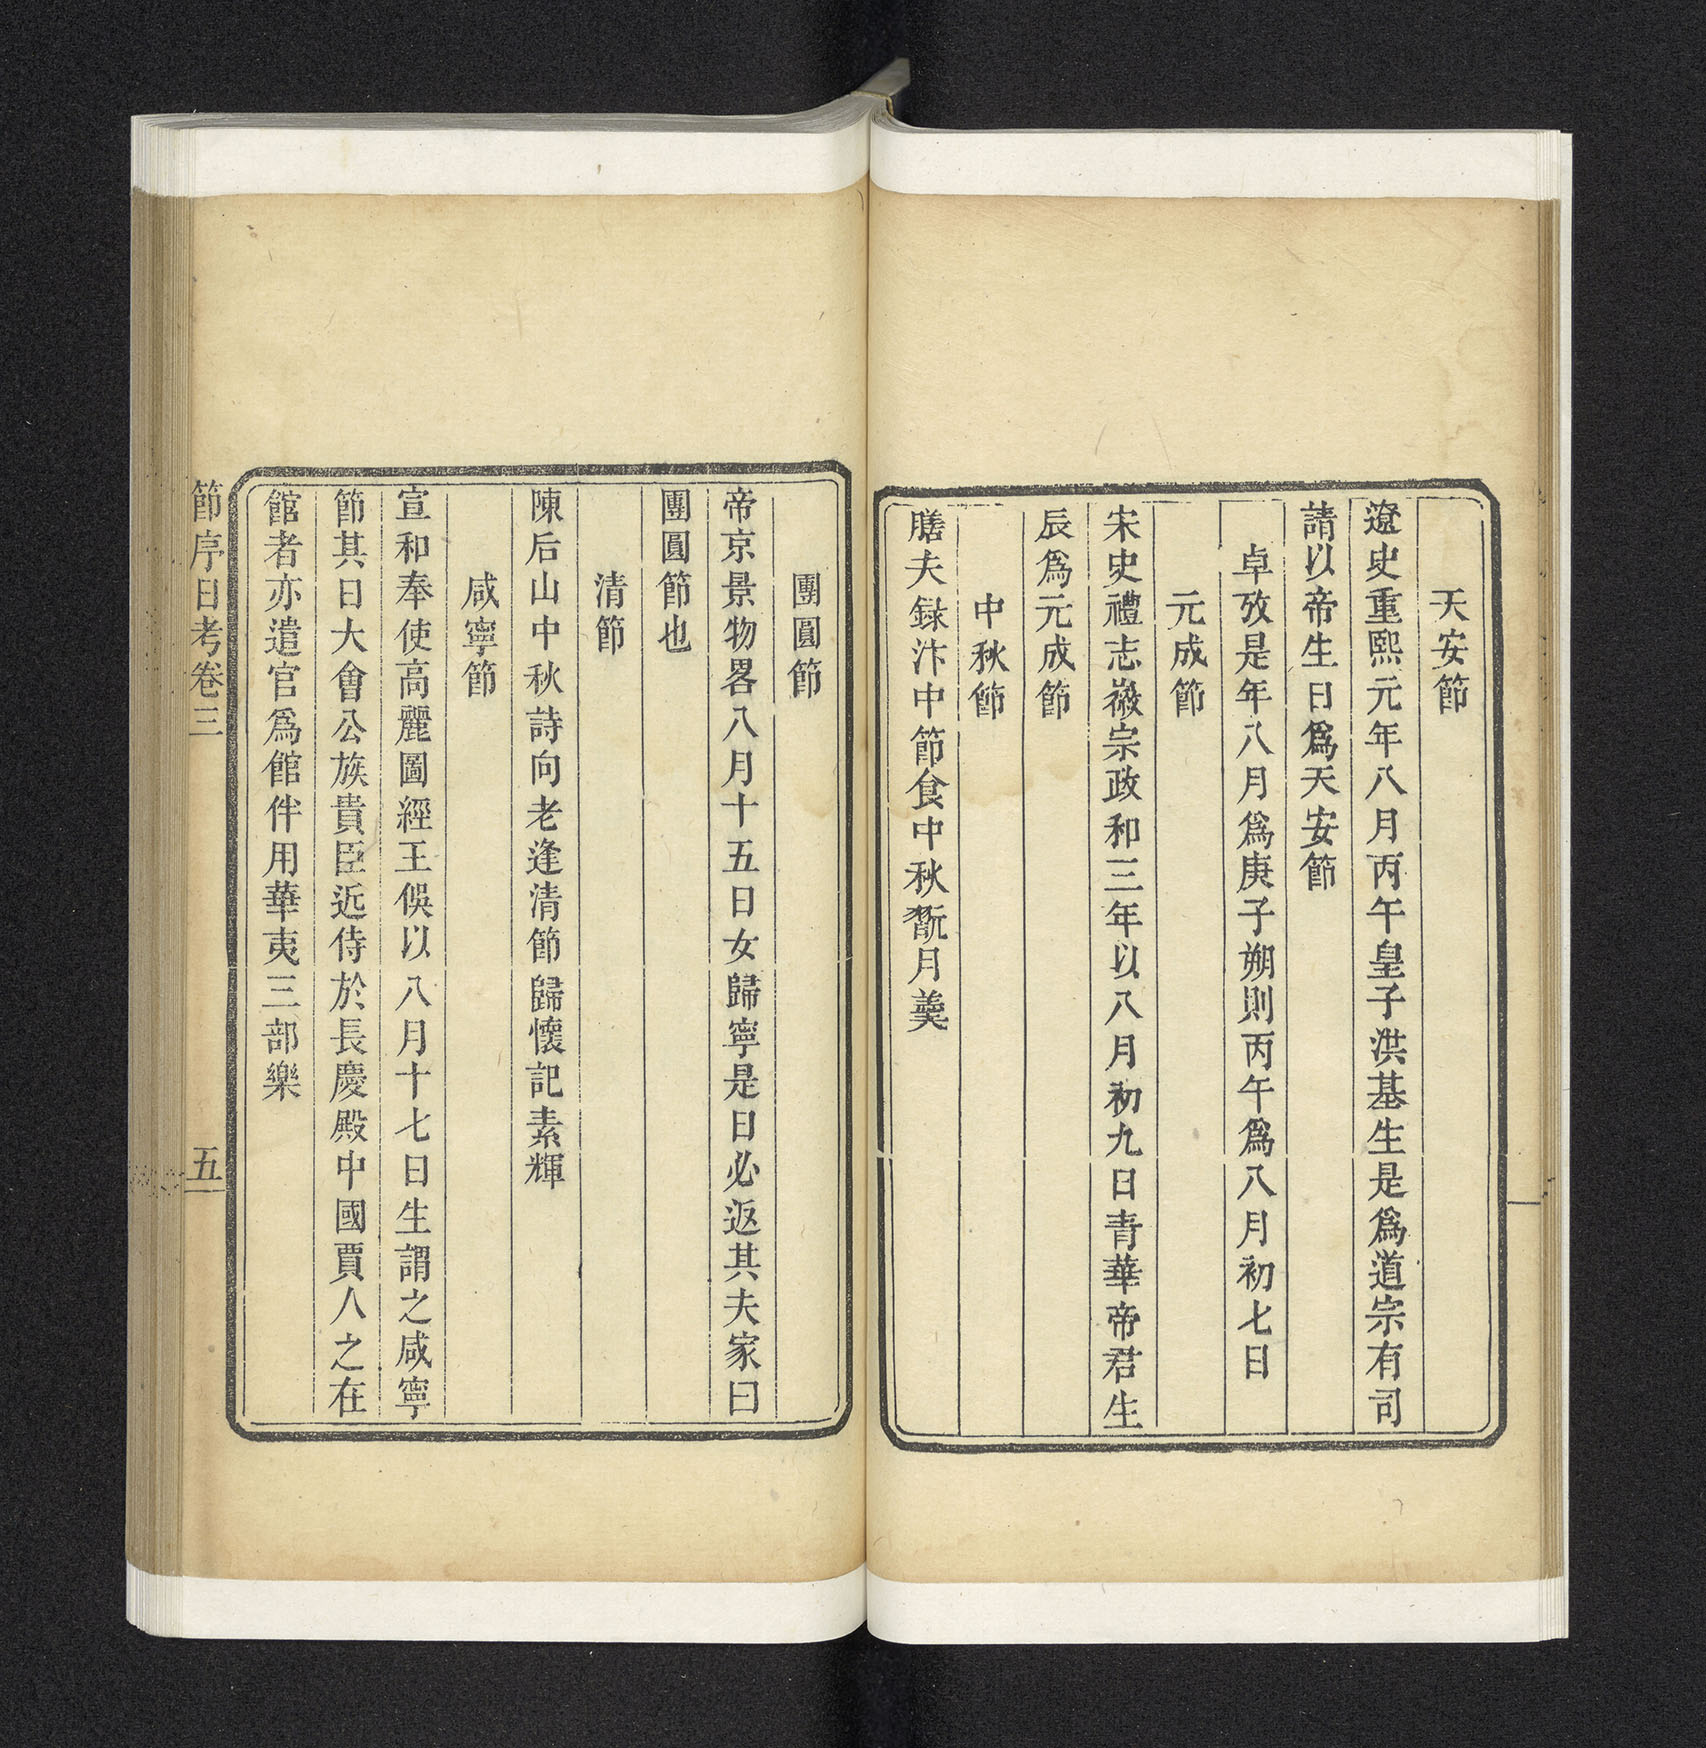 天安節
遼史重熙元年八月丙午皇子洪基生是爲道宗有司
請以帝生日爲天安節
卓攷是年八月爲庚子朔則丙午爲八月初七日
元成節
宋史禮志徽宗政和三年以八月初九日青華帝君生
辰爲元成節
中秋節
膳夫録汴中節食中秋翫月羹
團圓節
帝京景物畧八月十五日女歸寧是日必返其夫家曰
團圓節也
清節
陳后山中秋詩向老逢清節歸懷記素輝
咸寧節
宣和奉使高麗圖經王俁以八月十七日生謂之咸寧
節其日大會公族貴臣近侍於長慶殿中國賈人之在
館者亦遣官爲館伴用華夷三部樂
節序日考卷三
五